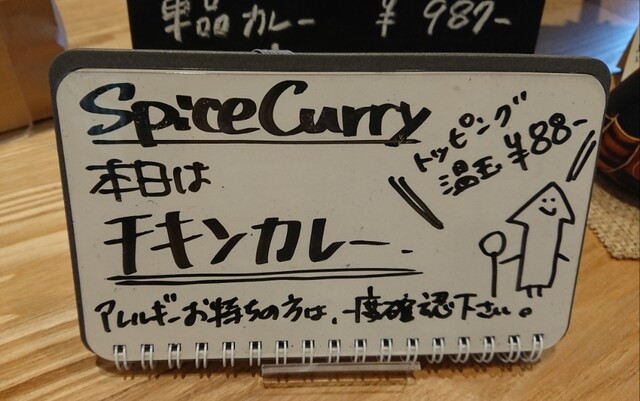 単品カレー ¥987-
Spice Curry
トッピング
温玉 ¥88-
本日は
チキンカレー.
アレルギーお持ちの方は、一度確認下さい。